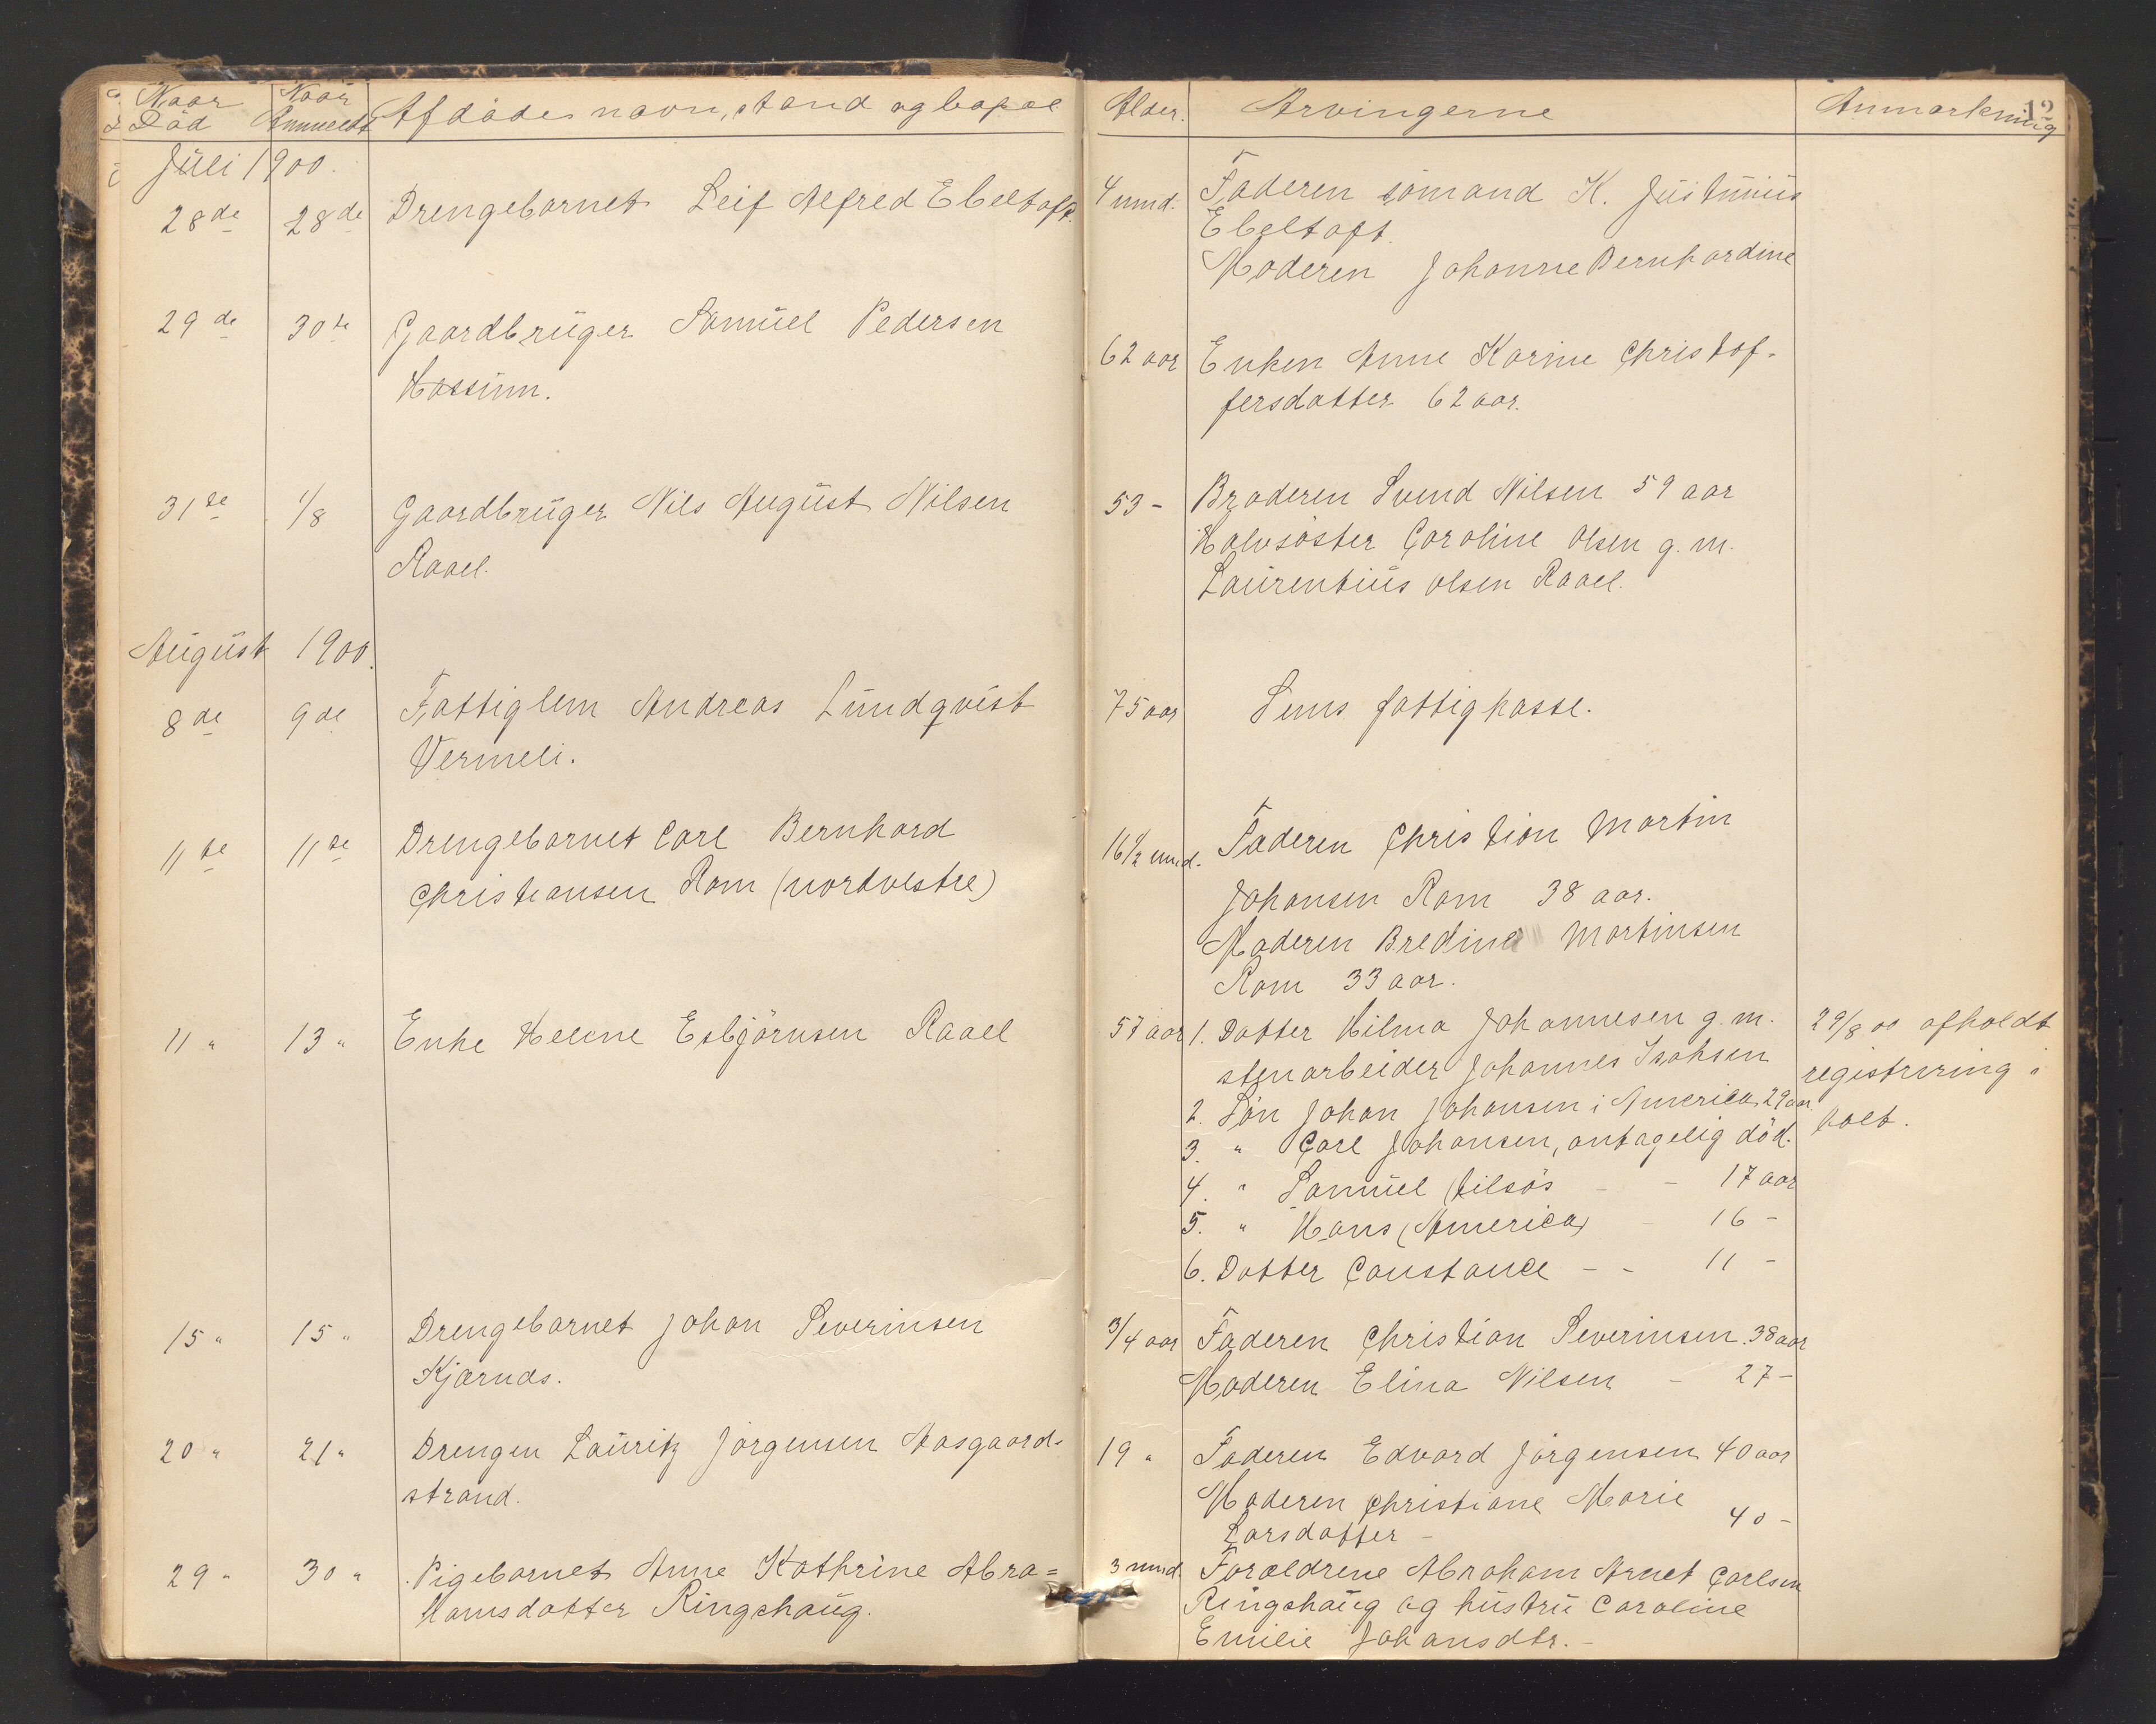 Naar Død Naar Anmeldt Afdødes navn, stand og bopæl Alder. Arvingerne Anmærkning 12
Juli 1900.
28de 28de Drengebarnet Leif Alfred Ebeltoft. 4 mnd. Faderen sømand K. Justinius
Ebeltoft.
Moderen Johanne Bernhardine
29de 30te Gaardbruger Samuel Pedersen
Hassum. 62 aar Enken Anne Karine Christof-
fersdatter 62 aar.
31te 1/8 Gaardbruger Nils August Nilsen 53 - Broderen Svend Nilsen 59 aar
Halvsøster Caroline Olsen g. m.
Raael. Laurentius Olsen Raael.
August 1900.
8de 9de Fattiglem Andreas Lundqvist 75 aar Sems fattigkasse.
Vermeli.
11te 11te Drengebarnet Carl Bernhard 16 1/2 mnd. Faderen Christian Martin
Christiansen Ram (nordvestre)
Johansen Ram 38 aar.
Moderen Bredine Martinsen
Ram 33 aar.
11 " 13 " Enke Helene Esbjørnsen Raael 57 aar 1. Datter Hilma Johannesen g. m. 29/8 00 afholdt
stenarbeider Johannes Isaksen registrering i
2. Søn Johan Johansen i America 29 aar
3. " Carl Johansen, antagelig död.
4. " Samuel (tilsøs - - 17 aar
5. " Hans (America) - 16 -
6. Datter Constance - - 11 -
15 " 15 " Drengebarnet Johan Severinsen 3/4 aar Faderen Christian Severinsen. 38 aar
Kjærnaas. Moderen Elina Nilsen - 27 -
20 " 21 " Drengen Lauritz Jørgensen Aasgaard- 19 " Faderen Edvard Jørgensen 40 aar
strand. Moderen Christiane Marie
Larsdatter - 40 -
29 " 30 " Pigebarnet Anne Kathrine Abra= 3 mnd. Forældrene Abraham Arnet Carlsen
hamsdatter Ringshaug. Ringshaug og hustru Caroline
Emilie Johansdtr. -